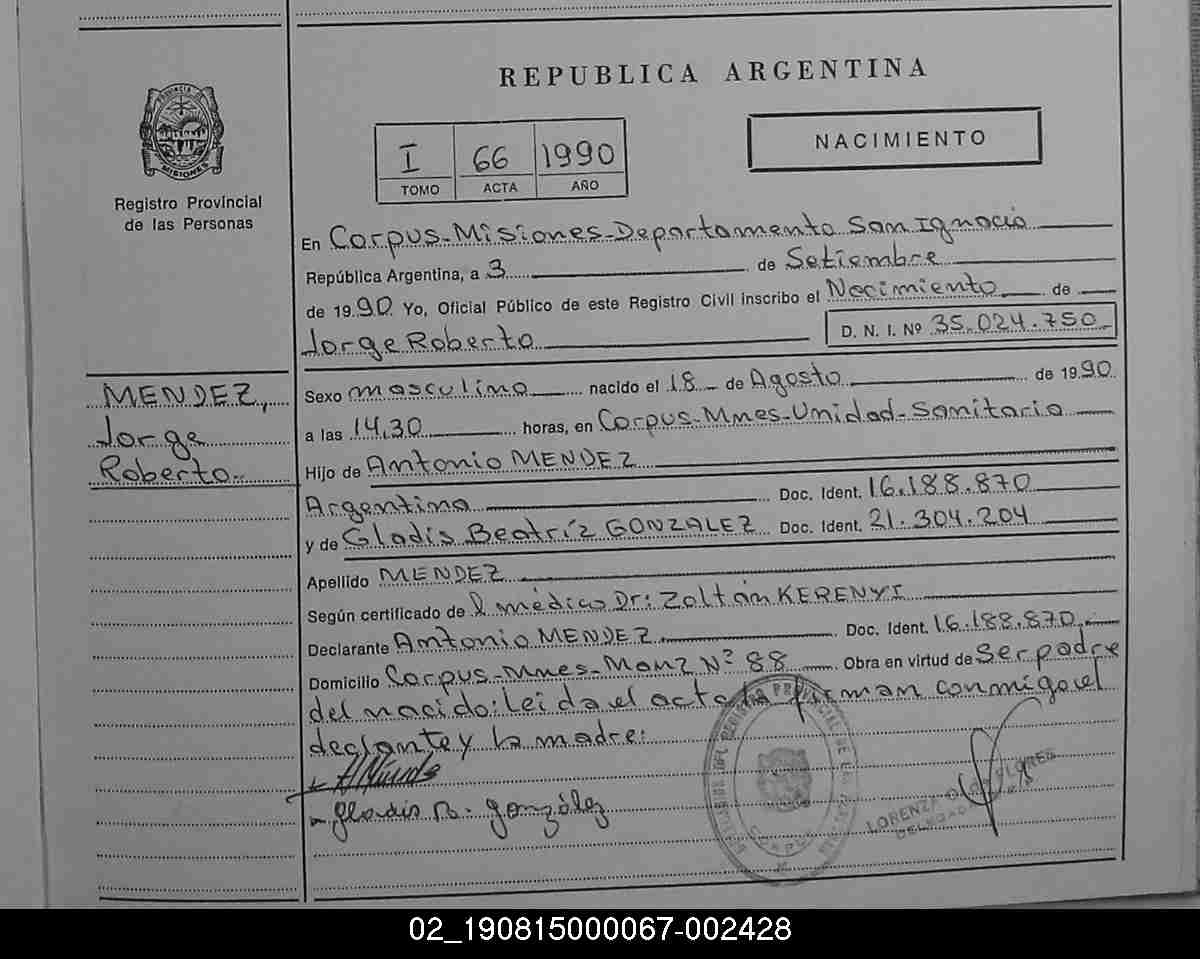 REPUBLICA ARGENTINA
PROVINCIA DE
MISIONES
Registro Provincial
de las Personas
I 66 1990
TOMO ACTA AÑO
NACIMIENTO
En Corpus-Misiones-Departamento San Ignacio
República Argentina, a 3 de Setiembre
de 1990 Yo, Oficial Público de este Registro Civil inscribo el Nacimiento de
Jorge Roberto D. N. I. Nº 35.024.750
MENDEZ,
Jorge
Roberto
Sexo masculino nacido el 18 de Agosto de 1990
a las 14,30 horas, en Corpus-Mnes-Unidad-Sanitaria
Hijo de Antonio MENDEZ
Argentina Doc. Ident. 16.188.870
y de Gladis Beatríz GONZALEZ Doc. Ident. 21.304.204
Apellido MENDEZ
Según certificado de l médico Dr: Zoltán KERENYI
Declarante Antonio MENDEZ Doc. Ident. 16.188.870
Domicilio Corpus-Mnes-Manz Nº 88 Obra en virtud de Ser padre
del nacido: Leida el acta la firman conmigo el
declante y la madre:
Gladis B. González
CORPUS
LORENZA FLORES
02_190815000067-002428